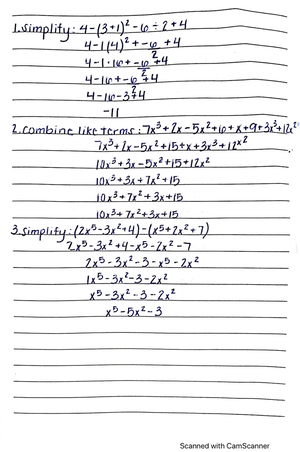 1. Simplify: 4-(3+1)²-6÷2+4
4-1(4)²+-6/2+4
4-1·16+-6/2+4
4-16+-6/2+4
4-16-3+4
-11
2. Combine like terms: 7x³+2x-5x²+6+x+9+3x³+12x²
7x³+2x-5x²+15+x+3x³+12x²
10x³+3x-5x²+15+12x²
10x³+3x+7x²+15
10x³+7x²+3x+15
10x³+7x²+3x+15
3. Simplify: (2x⁵-3x²+4)-(x⁵+2x²+7)
2x⁵-3x²+4-x⁵-2x²-7
2x⁵-3x²-3-x⁵-2x²
1x⁵-3x²-3-2x²
x⁵-3x²-3-2x²
x⁵-5x²-3
Scanned with CamScanner